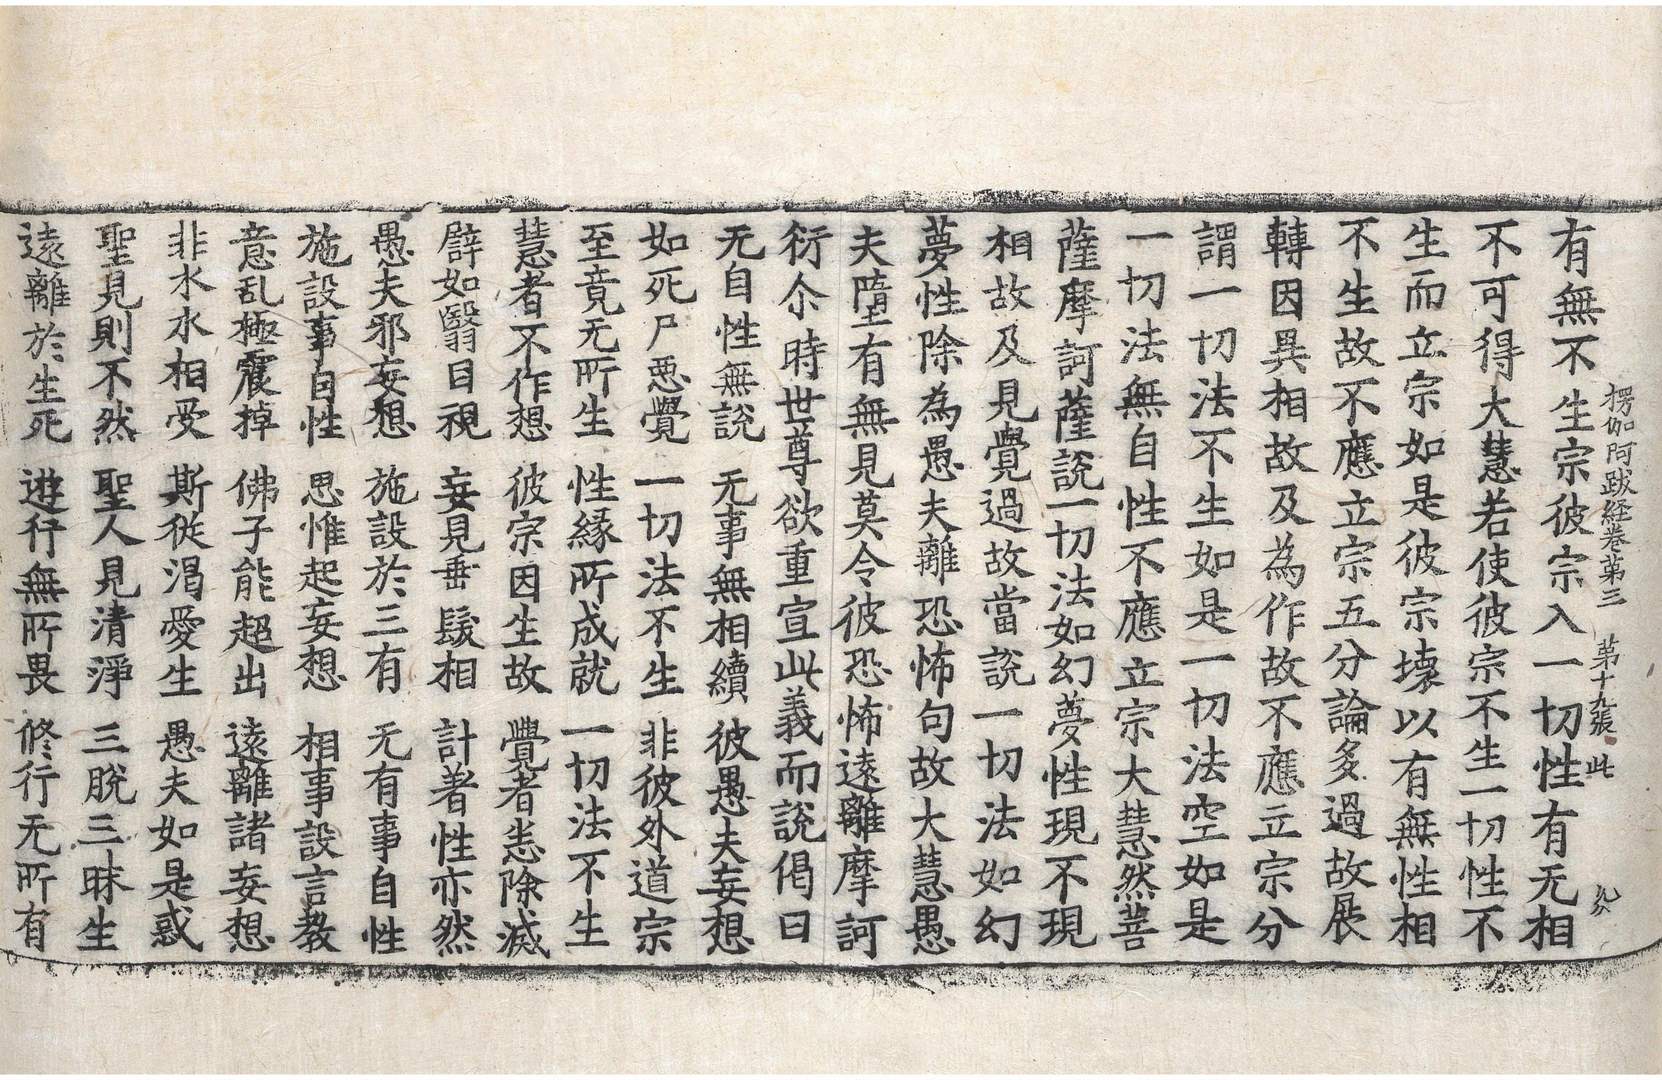 楞伽阿跋経卷第三 第十九張 此
有無不生宗彼宗入一切性有无相
不可得大慧若使彼宗不生一切性不
生而立宗如是彼宗壊以有無性相
不生故不應立宗五分論多過故展
轉因異相故及為作故不應立宗分
謂一切法不生如是一切法空如是
一切法無自性不應立宗大慧然菩
薩摩訶薩說一切法如幻夢性現不現
相故及見覺過故當說一切法如幻
夢性除為愚夫離恐怖句故大慧愚
夫墮有無見莫令彼恐怖遠離摩訶
衍尒時世尊欲重宣此義而說偈曰
无自性無說 无事無相續 彼愚夫妄想
如死尸悪覺 一切法不生 非彼外道宗
至竟无所生 性緣所成就 一切法不生
慧者不作想 彼宗因生故 覺者悉除滅
譬如翳目視 妄見垂髮相 計著性亦然
愚夫邪妄想 施設於三有 无有事自性
施設事自性 思惟起妄想 相事設言教
意乱極震掉 佛子能超出 遠離諸妄想
非水水相受 斯從渴愛生 愚夫如是惑
聖見則不然 聖人見清淨 三脫三昧生
遠離於生死 遊行無所畏 修行无所有